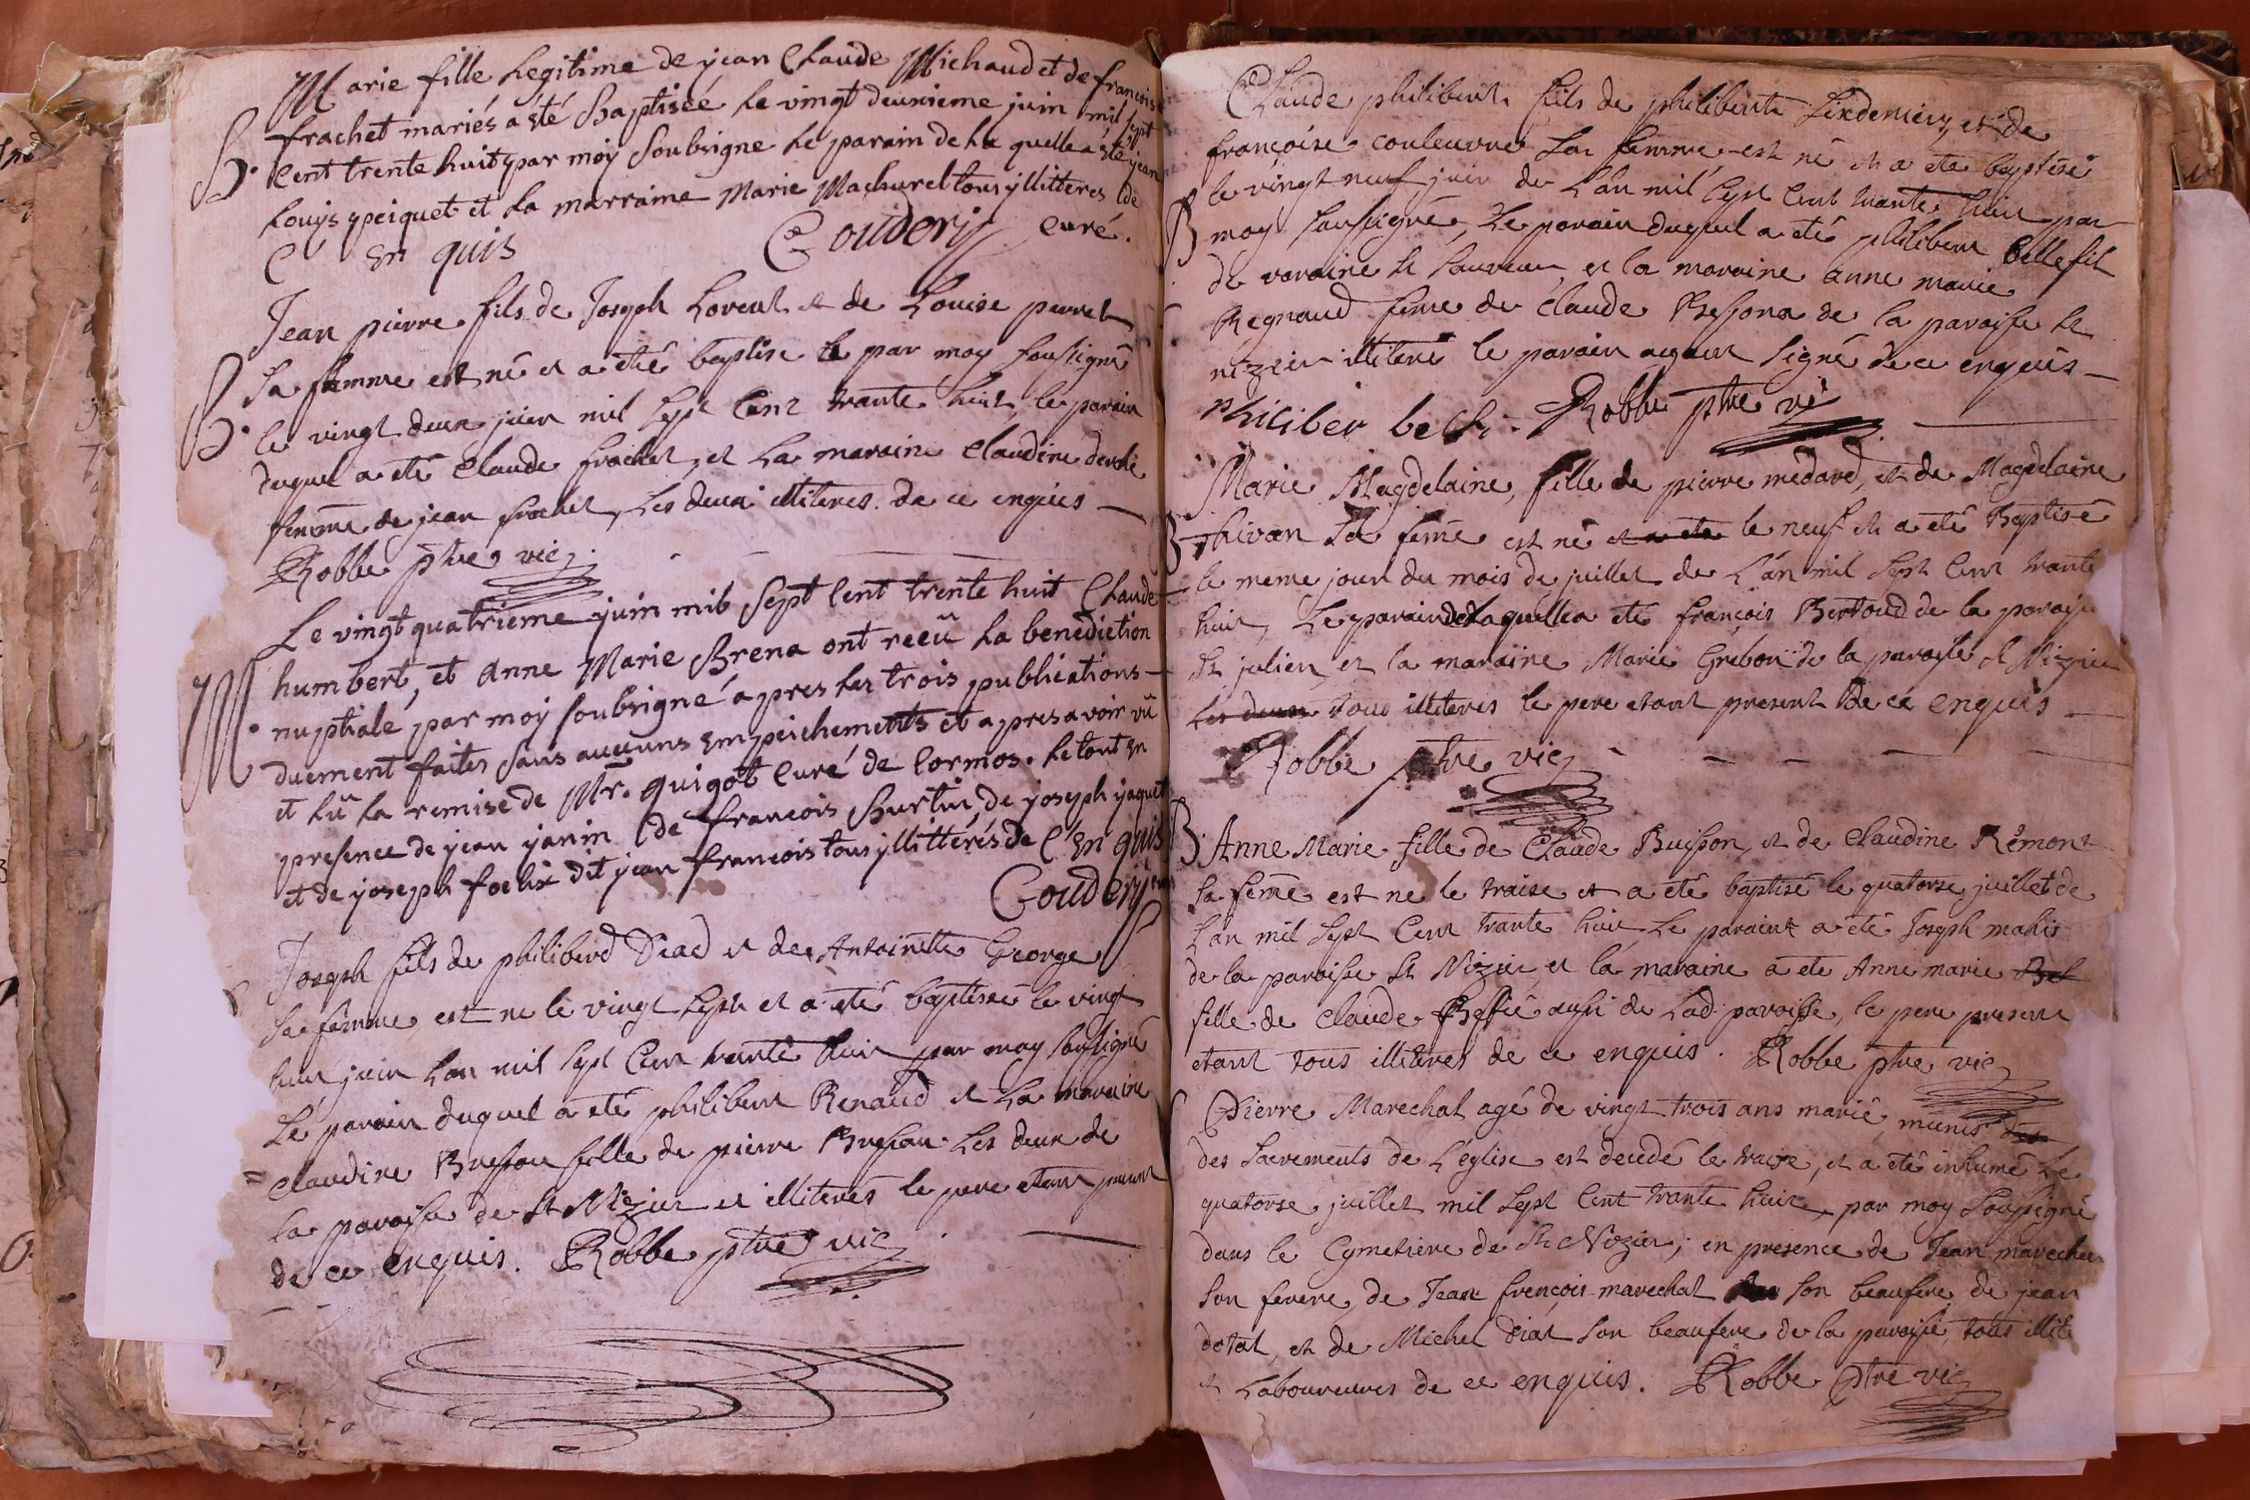 Marie fille Legitime de jean Claude Michaud et de francois
frachet mariés a eté Baptisée Le vingt deuxieme juin mil sept
B. Cent trente huit par moy Soubsigne Le parain de La quelle a eté jean
Louys piquet et La marraine Marie Machurel tous yllitteres de
C En quis Couderi curé.
Jean pierre fils de Joseph Lorent et de Louise perret
Sa femme est né et a eté baptise le par moy soussigné
B. le vingt deux juin mil sept Cent trante huit, le parain
duquel a eté Claude frachet, et La maraine Claudine
femme de jean frachet, Les deux illiteres. de ce enquis
Robbe ptre vic
Le vingt quatrieme juin mil Sept Cent trente huit Claude
M. humbert, et Anne Marie Brena ont reçû La benediction
nuptiale, par moy soubsigné apres Les trois publications
duement faites sans aucuns Empeichements et apres avoir vû
et Lû La remise de Mr. guigot Curé de Cormos. Le tout En
presence de jean janin de francois Burtin de joseph jaquet
et de joseph foelix dit jean francois tous yllittérés de C'En quis
Couderi
Joseph fils de philiberd Diad et de Antoinette George
Sa femme est ne le vingt sept et a eté baptisé le vingt
huit juin L'an mil sept Cent trante huit par moy soussigné
Le parain duquel a eté philibert Renaud et La maraine
Claudine Bresson fille de pierre Bresson Les deux de
La paroisse de St Nizier et illiteres le pere etant present
de ce enquis. Robbe ptre vic
Claude philibert fils de philiberte et de
françoise couleuvre Sa femme est né et a eté baptisé
le vingt neuf juin de L'an mil sept Cent trante huit par
B moy soussigné, Le parain duquel a eté philibert Bellefil
de varaine St Sauveur et la maraine Anne marie
Regnaud feme de Claude de la paroisse St
nizier illiteré le parain ayant signé de ce enquis
Philiber bel Robbe ptre vi
Marie Magdelaine, fille de pierre medard, et de Magdelaine
B thivan Sa feme est né et a eté le neuf et a eté Baptisé
le meme jour du mois de juillet de L'an mil sept Cent trante
huit, Le parain de Laquelle a eté françois Bertoud de la paroisse
St julien et la maraine Marie de la paroisse St Nizier
Les deux tous illiteres le pere etant present de ce enquis
Robbe ptre vic
B. Anne Marie fille de Claude Buisson, et de Claudine Rémont
Sa feme est ne le traise et a eté baptisé le quatorse juillet de
L'an mil sept Cent trante huit Le parain a eté Joseph mahis
de la paroisse St Nizier et la maraine a ete Anne marie Bef
fille de Claude Beffie aussi de Lad. paroisse, le pere present
etant tous illiteres de ce enquis. Robbe ptre vic
Pierre Marechal agé de vingt trois ans marié, munis des
des Sacrements de L'église est decedé le traise, et a été inhumé Le
quatorse juillet mil sept Cent trante huit, par moy soussigné
dans le Cymetiere de St Nizier; en presence de Jean marechal
son frere, de Jean françois marechal son beaufrere de jean
dotal, et de Michel Diat son beaufrere de la paroisse, tous illit
et Laboureurs de ce enquis. Robbe ptre vic